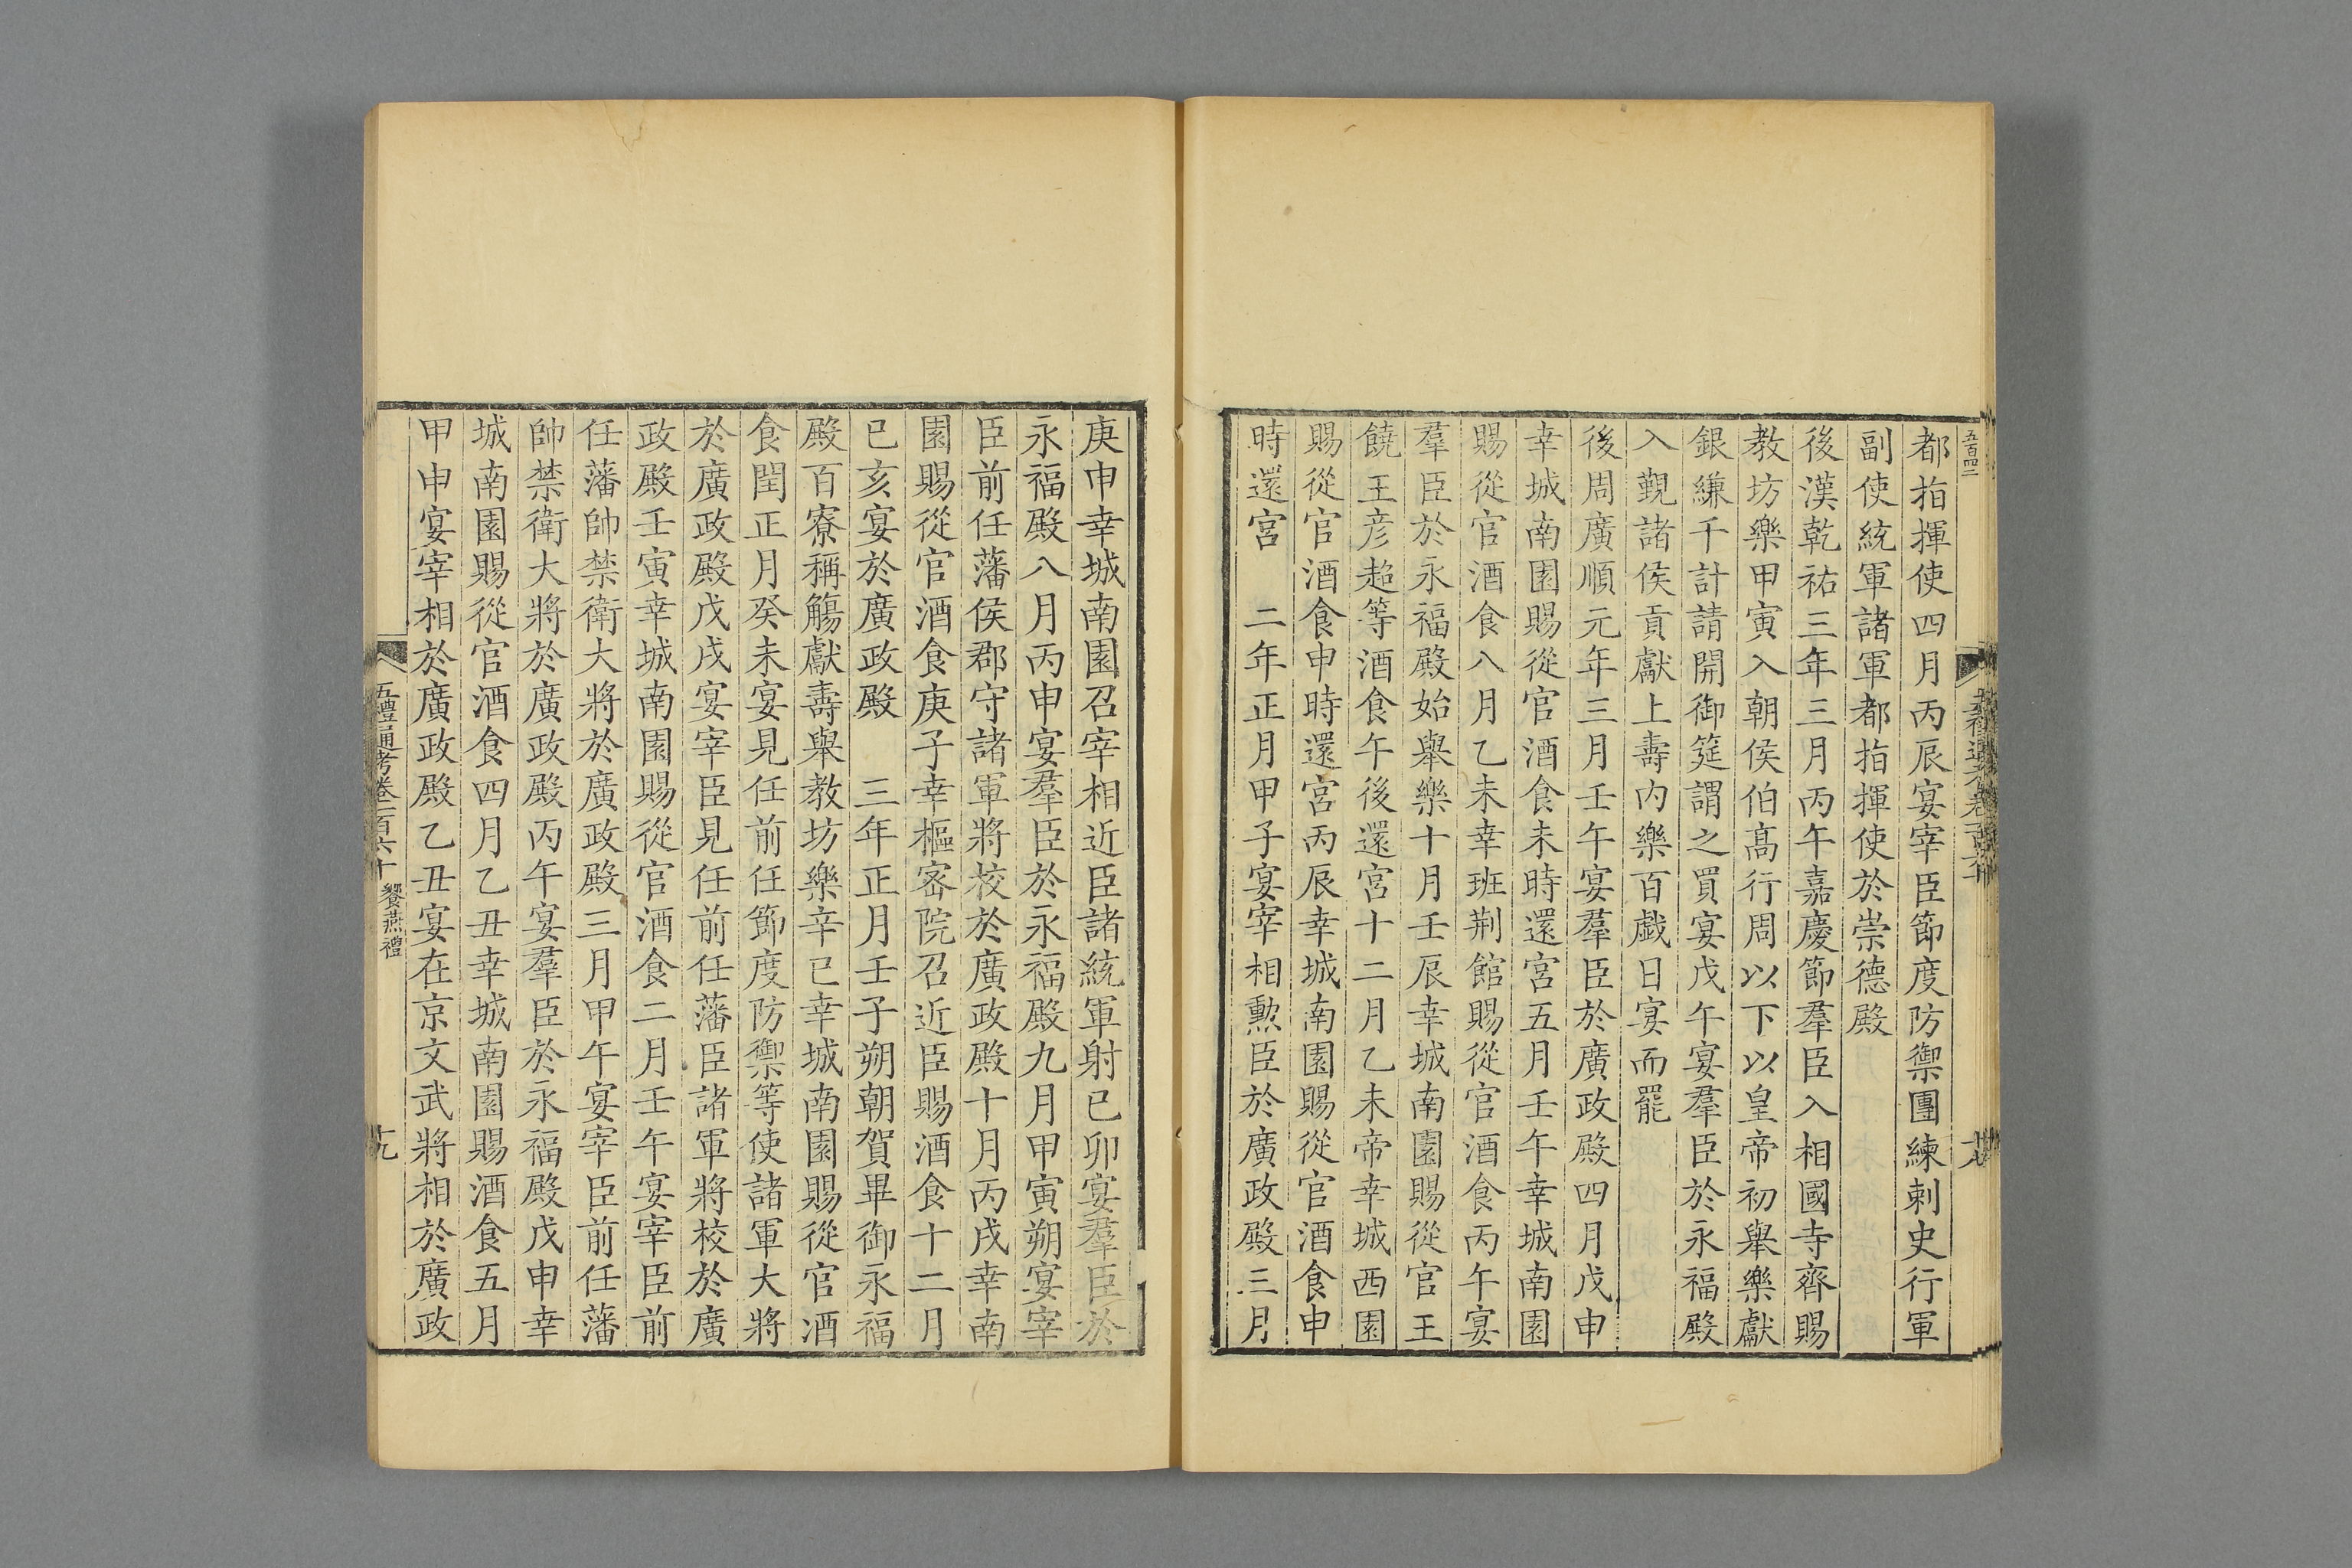 都指揮使四月丙辰宴宰臣節度防禦團練刺史行軍
副使統軍諸軍都指揮使於崇德殿
後漢乾祐三年三月丙午嘉慶節羣臣入相國寺齊賜
教坊樂甲寅入朝侯伯髙行周以下以皇帝初舉樂獻
銀縑千計請開御筵謂之買宴戊午宴羣臣於永福殿
入覲諸侯貢獻上壽内樂百戯日宴而罷
後周廣順元年三月壬午宴羣臣於廣政殿四月戊申
幸城南園賜從官酒食未時還宮五月壬午幸城南園
賜從官酒食八月乙未幸班荆館賜從官酒食丙午宴
羣臣於永福殿始舉樂十月壬辰幸城南園賜從官王
饒王彦超等酒食午後還宮十二月乙未帝幸城西園
賜從官酒食申時還宮丙辰幸城南園賜從官酒食申
時還宮　二年正月甲子宴宰相勲臣於廣政殿三月
庚申幸城南園召宰相近臣諸統軍射己卯宴羣臣於
永福殿八月丙申宴羣臣於永福殿九月甲寅朔宴宰
臣前任藩侯郡守諸軍將校於廣政殿十月丙戌幸南
園賜從官酒食庚子幸樞宻院召近臣賜酒食十二月
已亥宴於廣政殿　三年正月壬子朔朝賀畢御永福
殿百寮稱觴獻壽舉教坊樂辛已幸城南園賜從官酒
食閏正月癸未宴見任前任節度防禦等使諸軍大將
於廣政殿戊戌宴宰臣見任前任藩臣諸軍將校於廣
政殿壬寅幸城南園賜從官酒食二月壬午宴宰臣前
任藩帥禁衛大將於廣政殿三月甲午宴宰臣前任藩
帥禁衛大將於廣政殿丙午宴羣臣於永福殿戊申幸
城南園賜從官酒食四月乙丑幸城南園賜酒食五月
甲申宴宰相於廣政殿乙丑宴在京文武將相於廣政
五禮通考卷一百六十　饗燕禮　十九